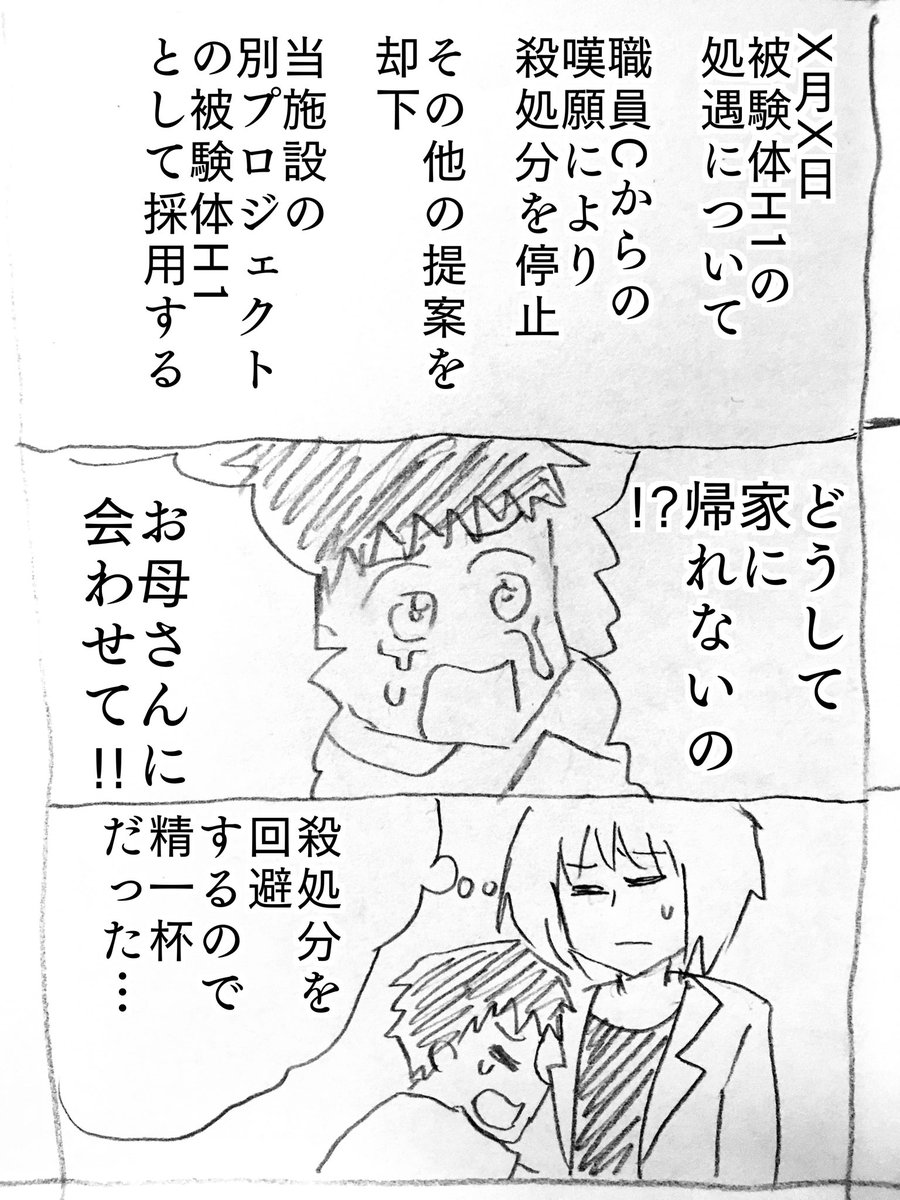 X月X日
被験体H1の
処遇について
職員Cからの
嘆願により
殺処分を停止
その他の提案を
却下
当施設の
別プロジェクト
の被験体H1
として採用する
どうして
家に
帰れないの
!?
お母さんに
会わせて!!
殺処分を
回避
するので
精一杯
だった…